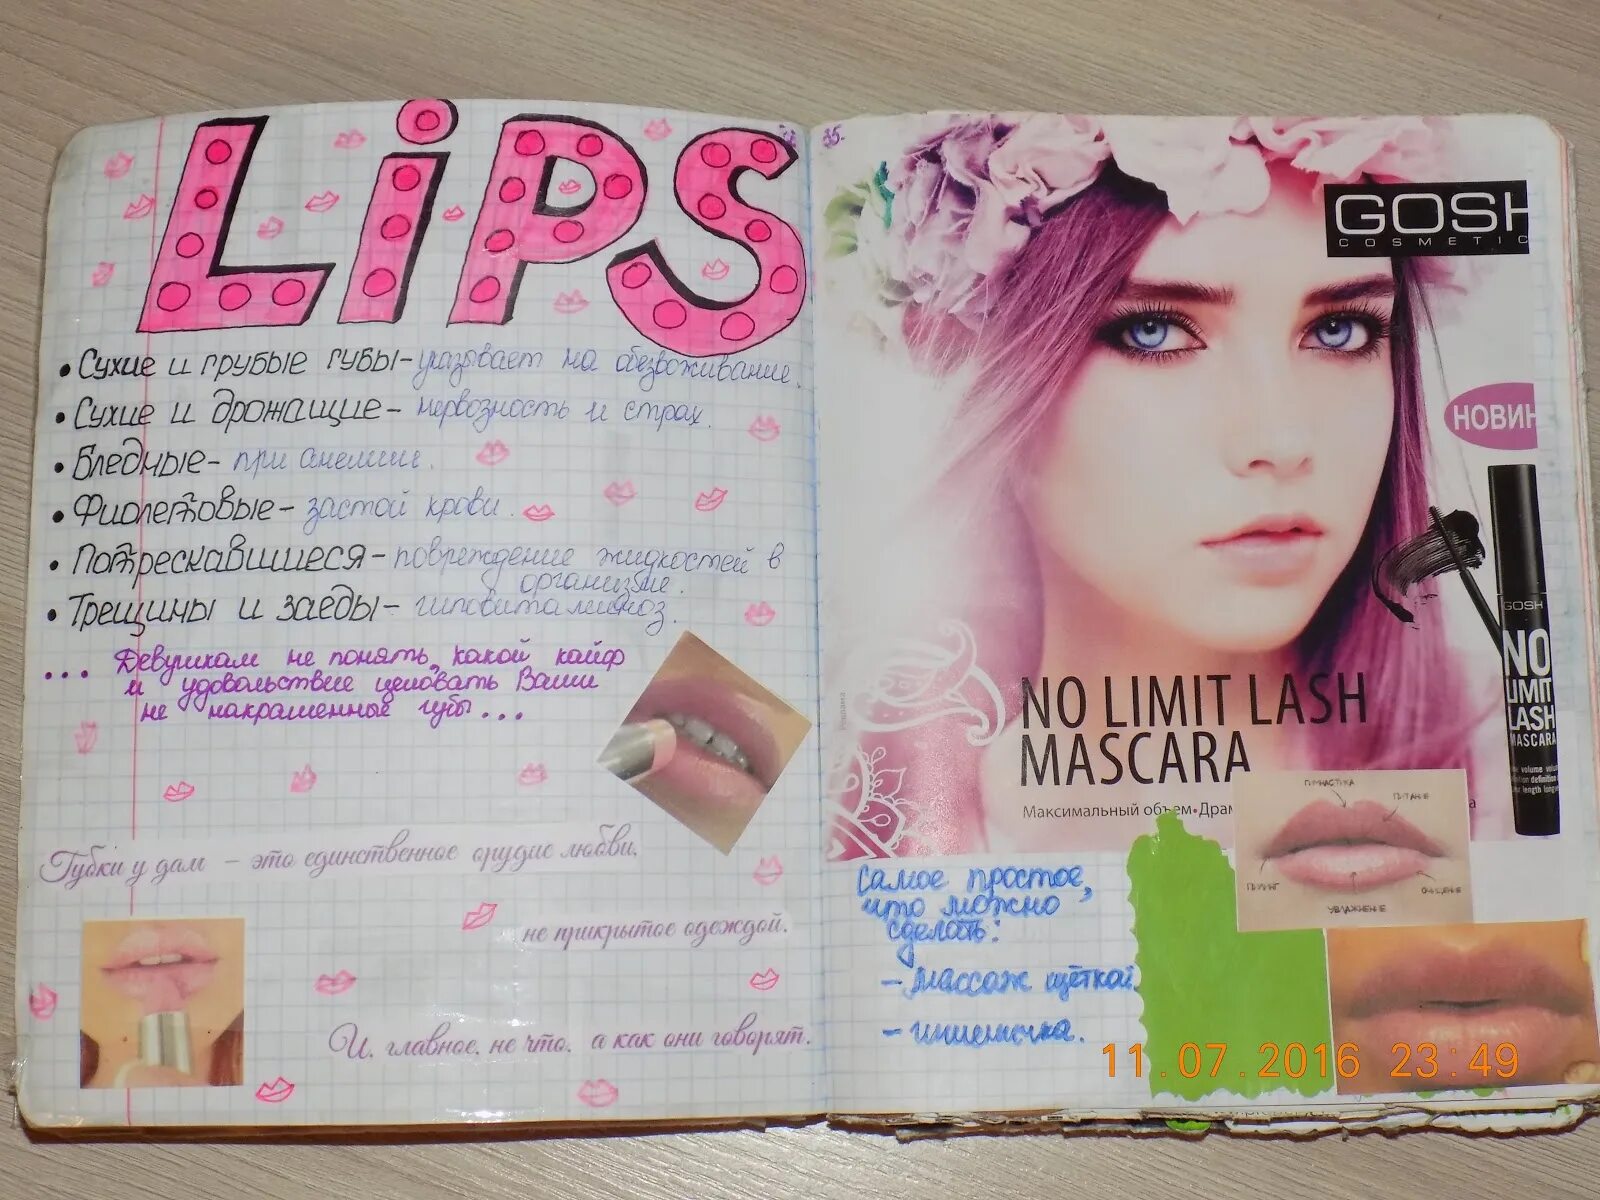 LiPS
• Сухие и грубые губы- указывает на обезвоживание.
• Сухие и дрожащие- нервозность и страх.
• Бледные- при анемии.
• Фиолетовые- застой крови.
• Потрескавшиеся- повреждение жидкостей в
организме.
• Трещины и заеды- гиповитаминоз.
... Девушкам не понять, какой кайф
и удовольствие целовать Ваши
не накрашенные губы...
Губки у дам - это единственное орудие любви,
не прикрытое одеждой.
И, главное, не что, а как они говорят.
35.
GOSH
COSMETIC
НОВИН
GOSH
NO
LIMIT
LASH
MASCARA
NO LIMIT LASH
MASCARA
Реклама
Максимальный объем•Драм
гимнастика
питание
пилинг
очищение
увлажнение
Самое простое,
что можно
сделать:
- массаж щёткой.
- шишечка.
11.07.2016 23:49